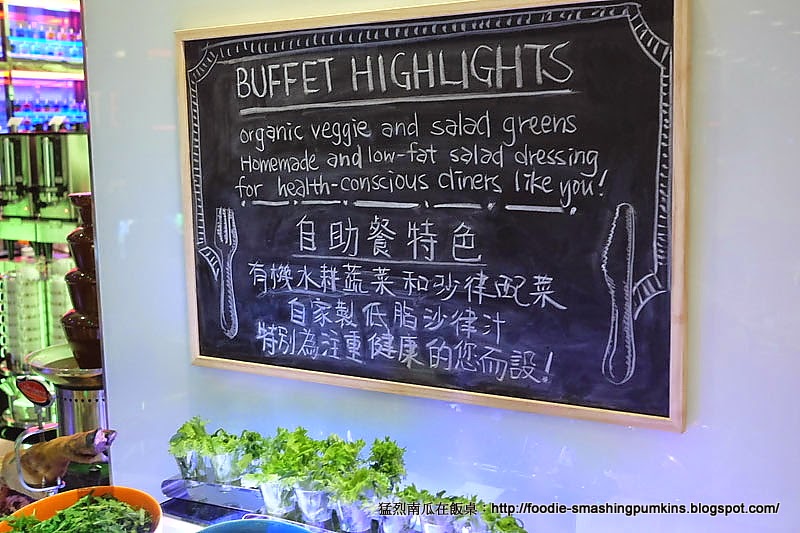 BUFFET HIGHLIGHTS
organic veggie and salad greens
Homemade and low-fat salad dressing
for health-conscious diners like you!
自助餐特色
有機水耕蔬菜和沙律配菜
自家製低脂沙律汁
特別為注重健康的您而設!
猛烈南瓜在飯桌:http://foodie-smashingpumkins.blogspot.com/